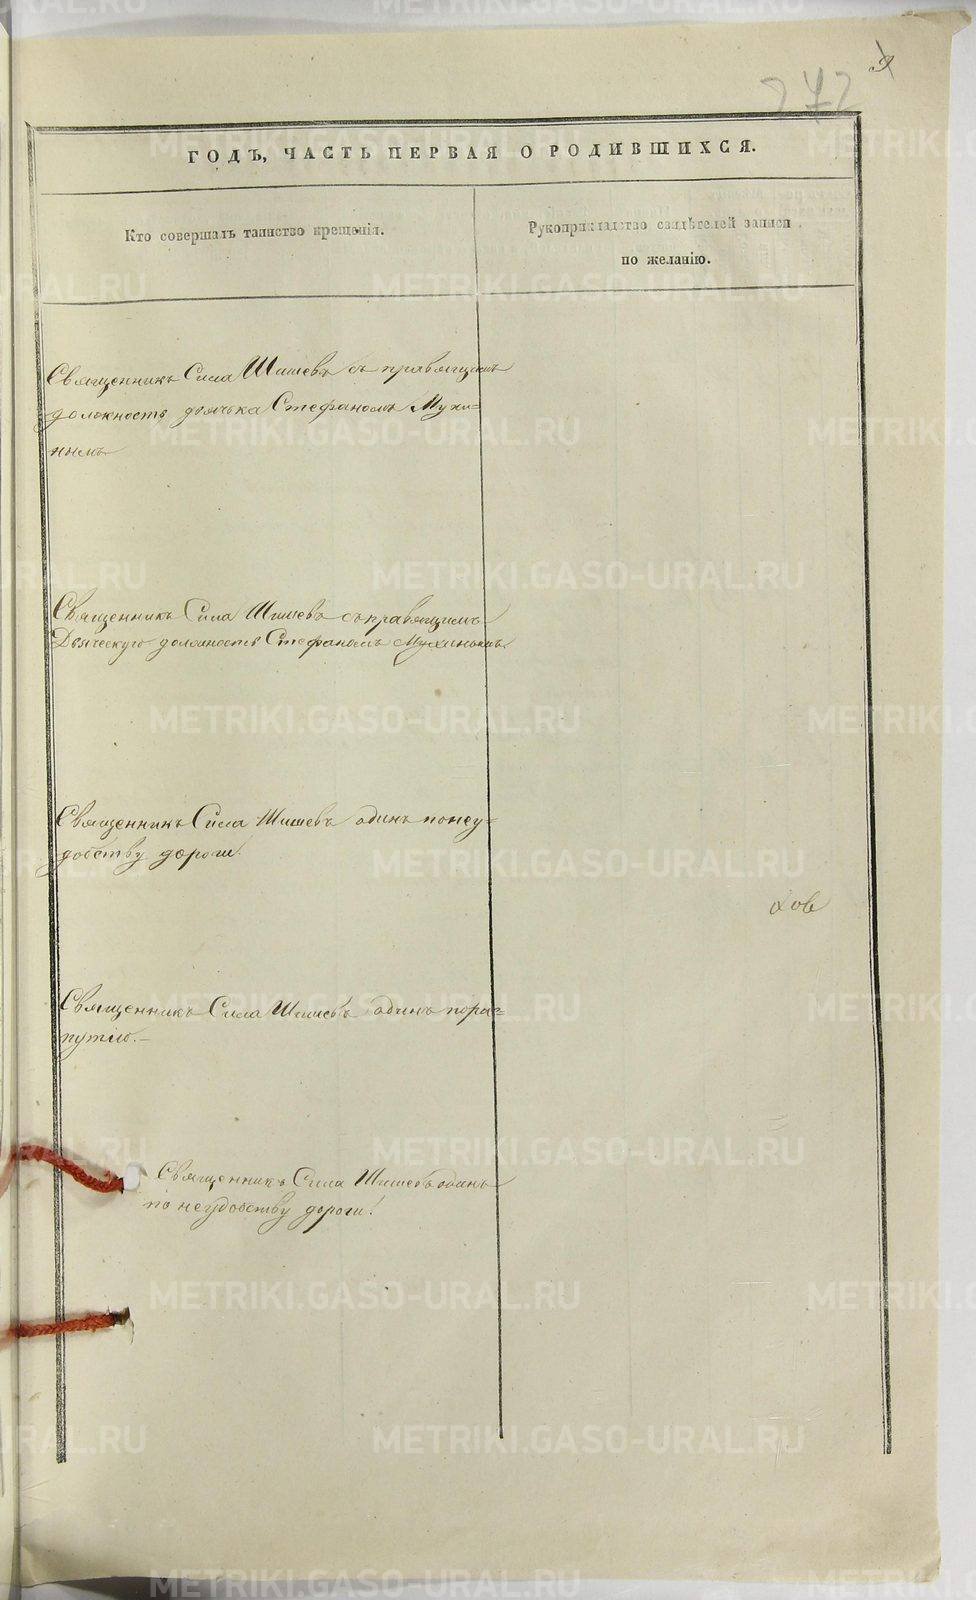 9
272
ГОДЪ, ЧАСТЬ ПЕРВАЯ О РОДИВШИХСЯ.
Кто совершалъ таинство крещенія.
Рукоприкладство свидѣтелей записи
по желанію.
Священникъ Сила Шишевъ съ правящимъ
должность дьячька Стефаномъ Мухи=
нымъ
Священникъ Сила Шишевъ съ правящимъ
Дьяческую должность Стефаномъ Мухинымъ
Священникъ Сила Шишевъ одинъ по неу=
добству дороги.
Священникъ Сила Шишевъ одинъ по рас=
путію.-
Священникъ Сила Шишевъ одинъ
по неудобству дороги!
METRIKI.GASO-URAL.RU